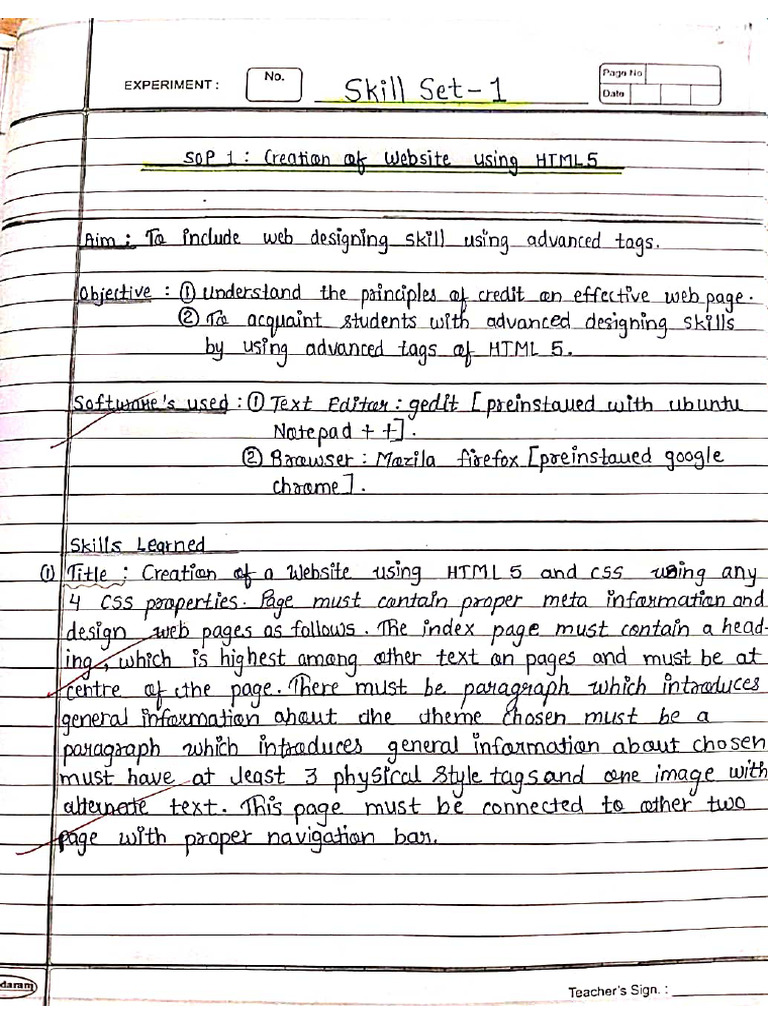 EXPERIMENT : No. Skill Set-1 Page No
Date
SOP 1 : Creation of Website using HTML5
Aim : To include web designing skill using advanced tags.
Objective : ① Understand the principles of credit an effective web page.
② To acquaint students with advanced designing skills
by using advanced tags of HTML 5.
Software's used : ① Text Editor : gedit [preinstaued with ubuntu
Notepad + +].
② Browser : Mozila firefox [preinstaued google
chrome].
Skills Learned
① Title : Creation of a Website using HTML 5 and CSS using any
4 CSS properties. Page must contain proper meta information and
design web pages as follows. The index page must contain a head-
ing, which is highest among other text on pages and must be at
centre of the page. There must be paragraph which introduces
general information about the theme chosen must be a
paragraph which introduces general information about chosen
must have at least 3 physical style tags and one image with
alternate text. This page must be connected to other two
page with proper navigation bar.
daram
Teacher's Sign. :